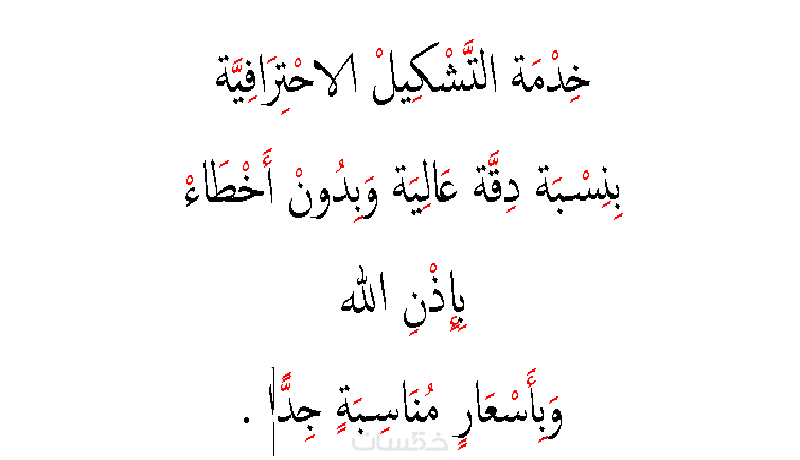 خِدْمَة التَّشْكِيلْ الاحْتِرَافِيَّة
بِنِسْبَة دِقَّة عَالِيَة وَبِدُونْ أَخْطَاءْ
بِإِذْنِ الله
وَبِأَسْعَارٍ مُنَاسِبَةٍ جِدًّا .
خمسات